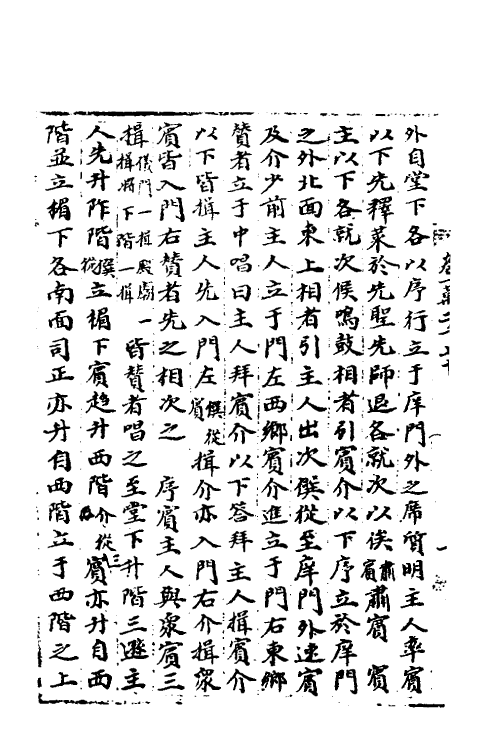 外自堂下各以序行立于庠門外之席質明主人率賓
以下先釋菜於先聖先師退各就次以俟肅賓 肅賓 賓
主以下各就次候鳴鼓相者引賓介以下序立於庠門
之外北面東上相者引主人出次僎從至庠門外速賓
及介少前主人立于門左西鄉賓介進立于門右東鄉
贊者立于中唱曰主人拜賓介以下答拜主人揖賓介
以下皆揖主人先入門左僎從賓揖介亦入門右介揖衆
賓皆入門右贊者先之相次之 序賓主人與衆賓三
揖儀門一揖殿廟一揖將下階一揖皆贊者唱之至堂下升階三遜主
人先升阼階僎從立楣下賓趨升西階介從賓亦升自西
階並立楣下各南面司正亦升自西階立于西階之上